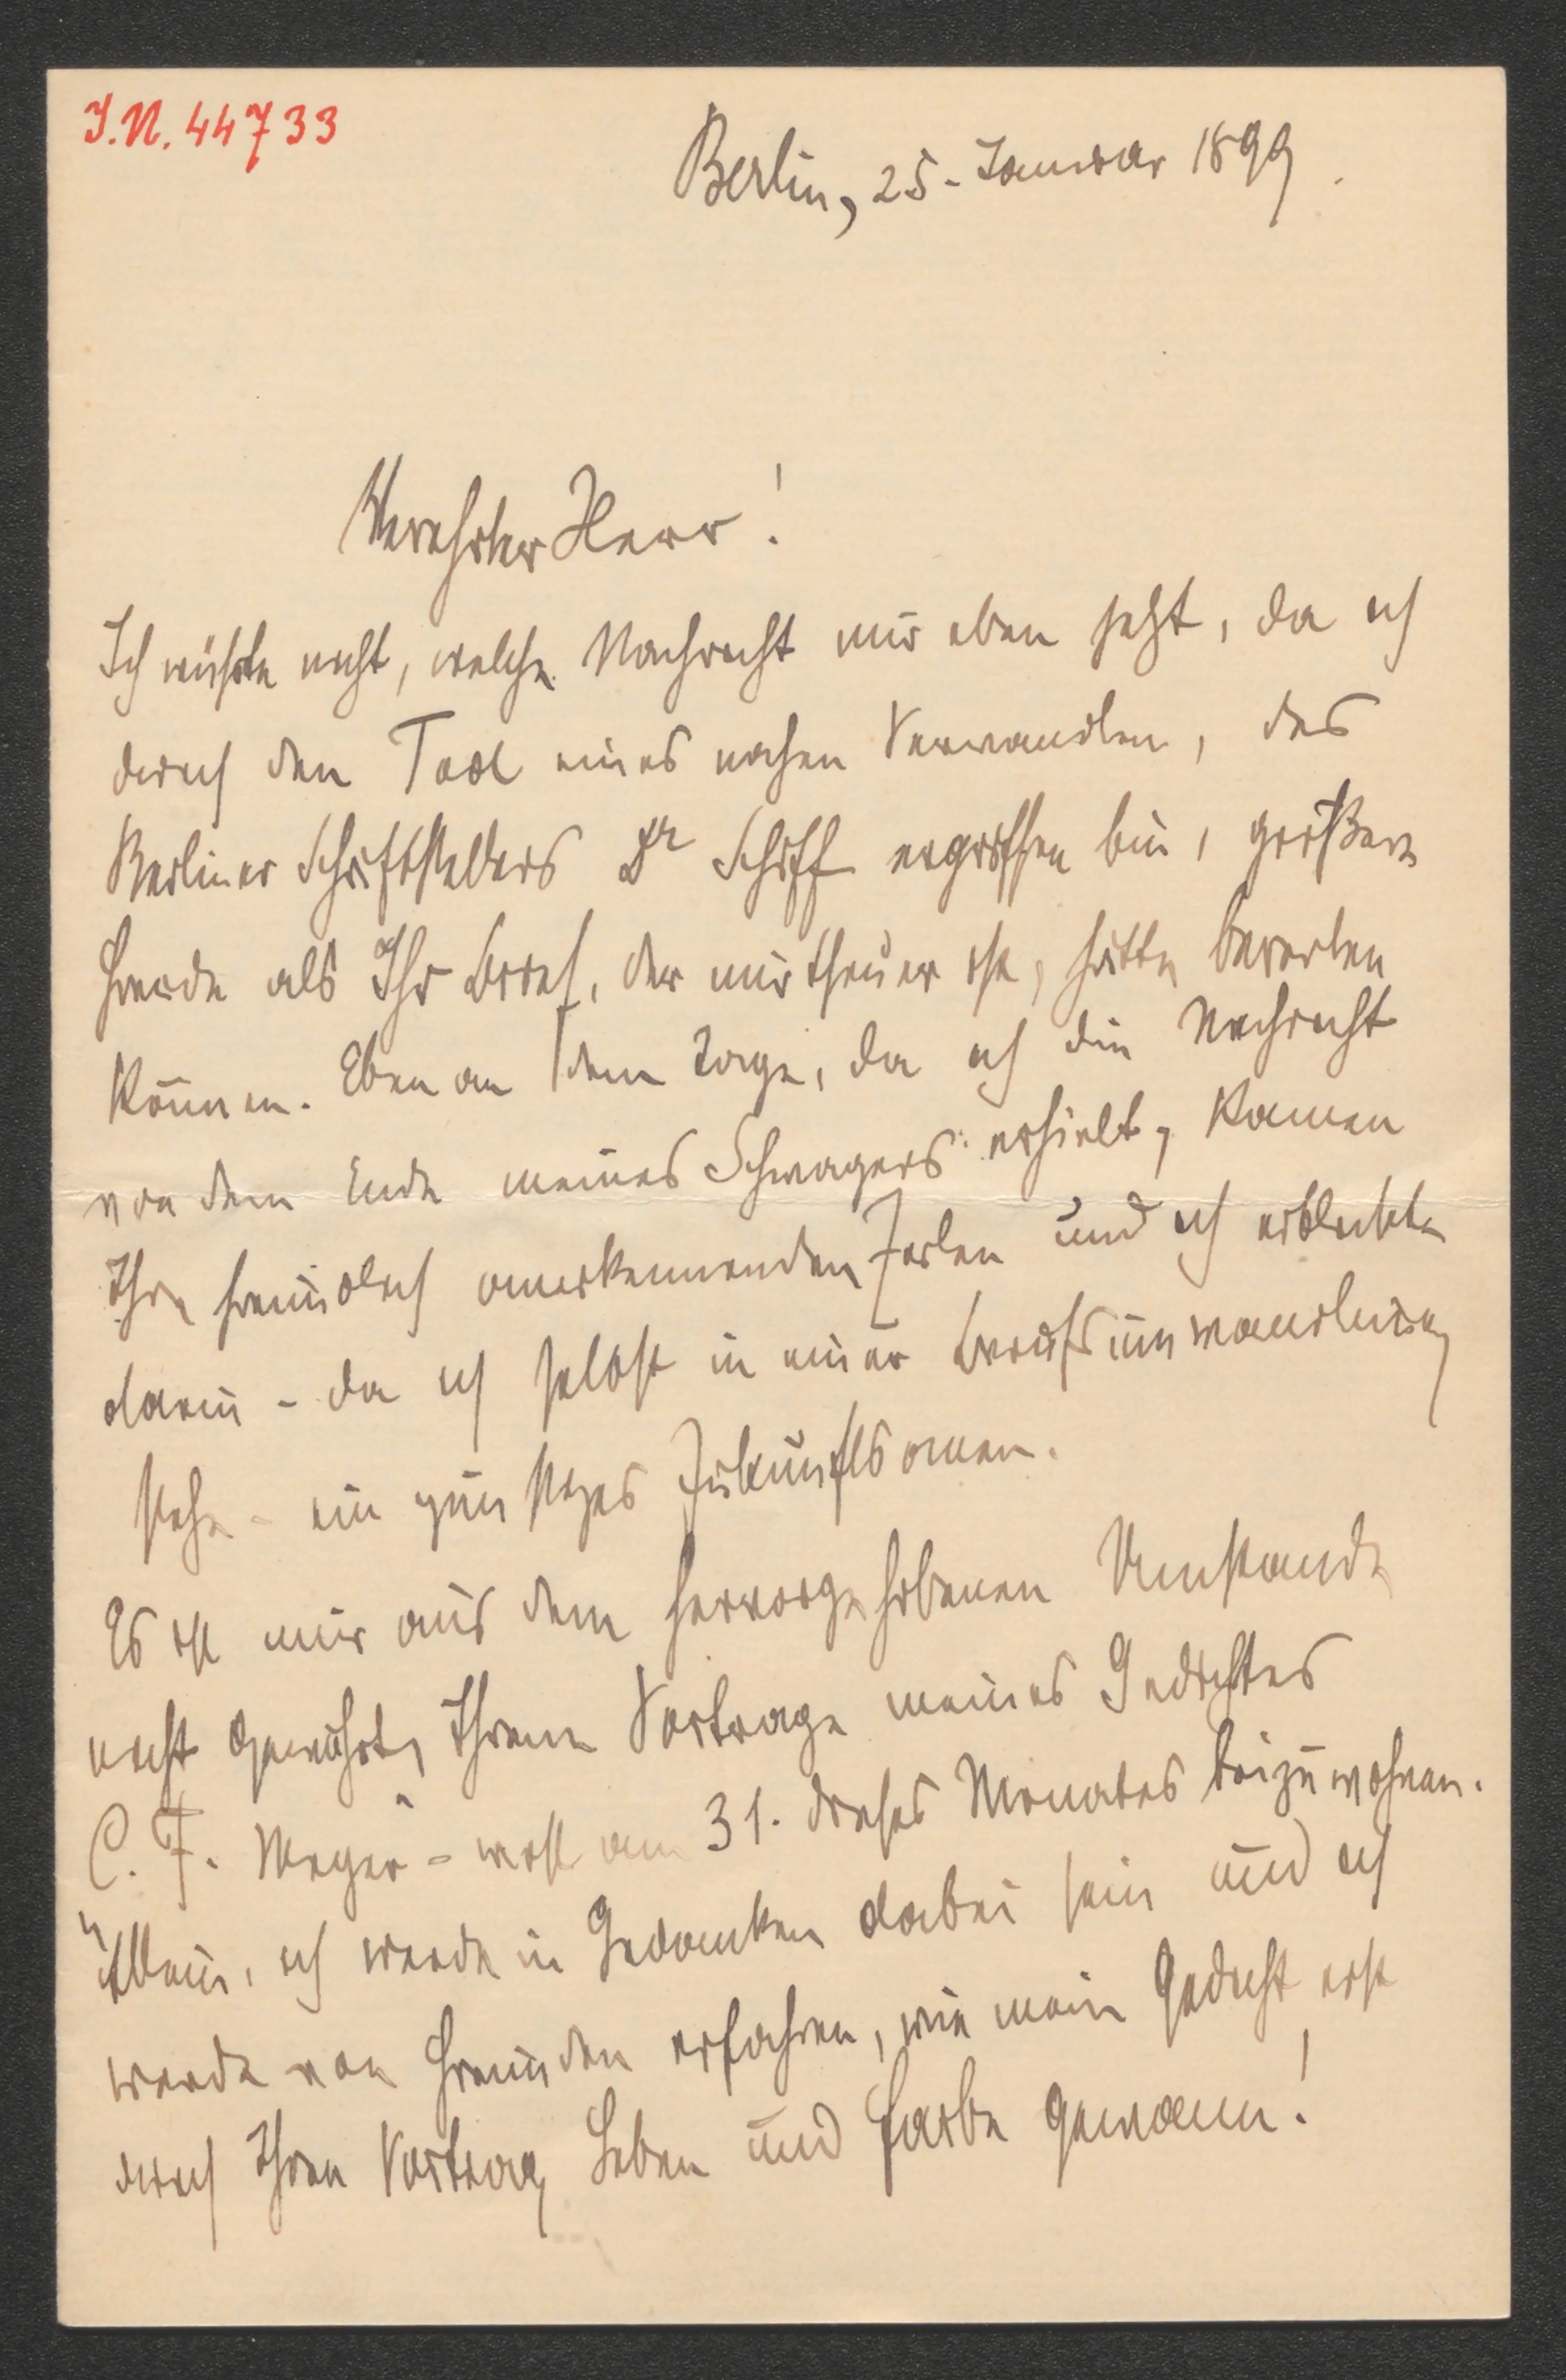 I.N. 44733
Berlin, 25. Januar 1899.
Verehrter Herr!
Ich wüßte nicht, welche Nachricht mir eben jetzt, da ich
durch den Tod eines nahen Verwandten, des
Berliner Schriftstellers Dr Schiff ergriffen bin, größere
Freude als Ihr Brief, der mir theuer ist, hätte bereiten
können. Eben an dem Tage, da ich die Nachricht
von dem Ende meines Schwagers erhielt, kamen
Ihre freundlich anerkennenden Zeilen und ich erblickte
darin - da ich selbst in einer Berufsumwandlung
stehe - ein günstiges Zukunftsomen.
Es ist mir aus dem hervorgehobenen Umstande
nicht gewährt, Ihrem Vortrage meines Gedichtes
„C. F. Meyer" - wohl am 31. dieses Monates beizuwohnen.
Allein, ich werde in Gedanken dabei sein und ich
werde von Freunden erfahren, wie mein Gedicht erst
durch Ihren Vortrag Leben und Farbe gewann!